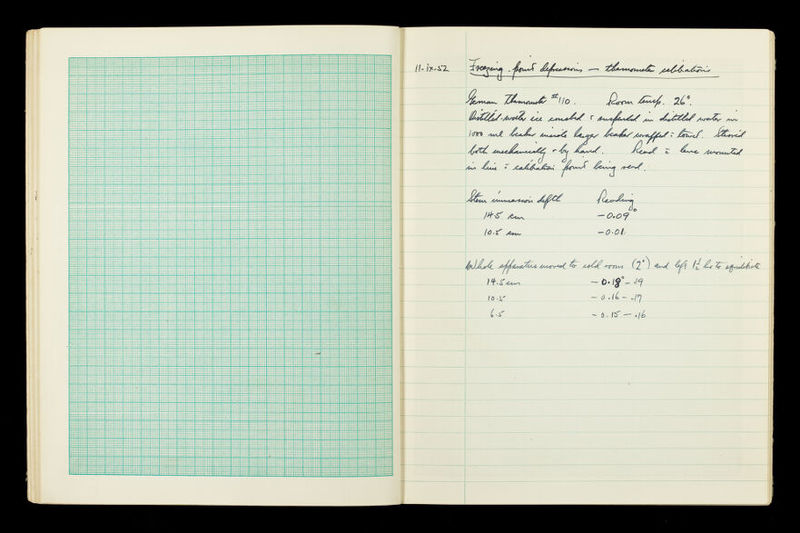 11-ix-52 Freezing point depressions — thermometer calibrations
German Thermometer #110. Room temp. 26°.
Distilled water ice crushed & suspended in distilled water in
1000 ml beaker inside larger beaker wrapped c̄ towel. Stirred
both mechanically & by hand. Read c̄ lens mounted
in line c̄ calibration point being read.
Stem immersion depth Reading
14.5 cm −0.09°
10.5 cm −0.01
Whole apparatus moved to cold room (2°) and left 1½ hrs to equilibrate
14.5 cm −0.18° − .19
10.5 −0.16 − .17
6.5 −0.15 − .16